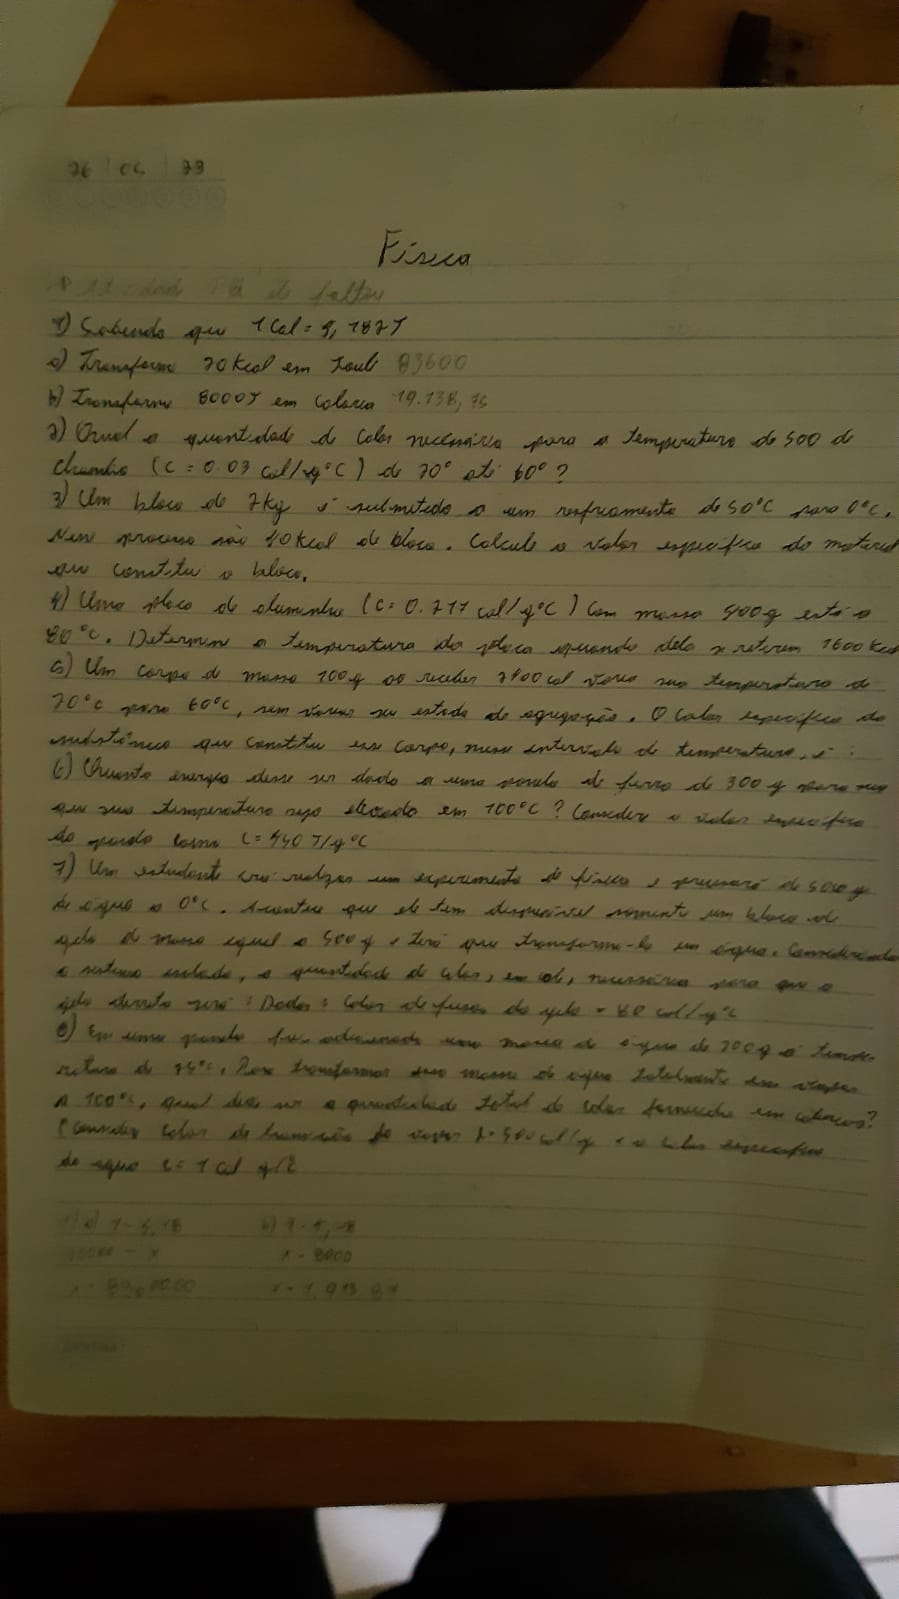 26 | 05 | 23
Física
1) Sabendo que 1 Cal = 4,182J
a) Transforme 20 Kcal em Joule 83600
b) Transforme 8000J em Caloria 19.138,75
2) Qual a quantidade de calor necessária para a temperatura de 500 de
Chumbo (C = 0.03 cal/g°C) de 20° até 60°?
3) Um bloco de 2kg é submetido a um resfriamento de 50°C para 0°C.
Nesse processo são 40 Kcal do bloco. Calcule o valor específico do material
que constitui o bloco.
4) Uma placa de alumínio (C = 0.217 cal/g°C) com massa 400g está a
80°C. Determin a temperatura da placa quando dela se retirem 1600 Kcal
5) Um corpo de massa 100g ao receber 2400 cal varia sua temperatura de
20°C para 60°C, sem variar seu estado de agregação. O calor específico da
substância que constitui esse corpo, nesse intervalo de temperatura, é:
6) Quanta energia deve ser dada a uma panela de ferro de 300g para
que sua temperatura seja elevada em 100°C? Considere o calor específico
da panela como C = 450 J/g°C
7) Um estudante irá realizar um experimento de física e precisará de 500g
de água a 0°C. Acontece que ele tem disponível somente um bloco de
gelo de massa igual a 500g e terá que transformá-lo em água. Considerando
o sistema isolado, a quantidade de calor, em cal, necessária para que o
gelo derreta será: Dados: Calor de fusão do gelo = 80 cal/g°C
8) Em uma panela foi adicionada uma massa de água de 200g à
de 25°C. Para transformar essa massa de água totalmente em vapor
a 100°C, qual deve ser a quantidade total de calor fornecida em calorias?
(Considere calor de vapor = 540 cal/g e o calor específico
da água c = 1 Cal
a) 1 - 4,18 b) 1 - 4,18
x - 8000